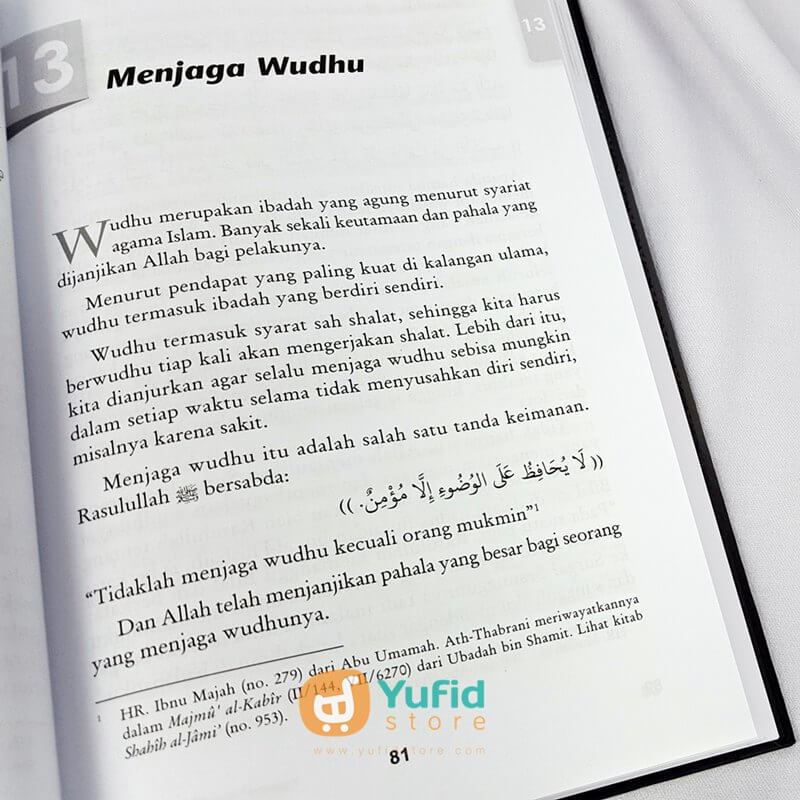 13
13
Menjaga Wudhu
Wudhu merupakan ibadah yang agung menurut syariat
agama Islam. Banyak sekali keutamaan dan pahala yang
dijanjikan Allah bagi pelakunya.
Menurut pendapat yang paling kuat di kalangan ulama,
wudhu termasuk ibadah yang berdiri sendiri.
Wudhu termasuk syarat sah shalat, sehingga kita harus
berwudhu tiap kali akan mengerjakan shalat. Lebih dari itu,
kita dianjurkan agar selalu menjaga wudhu sebisa mungkin
dalam setiap waktu selama tidak menyusahkan diri sendiri,
misalnya karena sakit.
Menjaga wudhu itu adalah salah satu tanda keimanan.
Rasulullah ﷺ bersabda:
(( لَا يُحَافِظُ عَلَى الوُضُوءِ إِلَّا مُؤْمِنٌ. ))
“Tidaklah menjaga wudhu kecuali orang mukmin”¹
Dan Allah telah menjanjikan pahala yang besar bagi seorang
yang menjaga wudhunya.
¹ HR. Ibnu Majah (no. 279) dari Abu Umamah. Ath-Thabrani meriwayatkannya
dalam Majmû' al-Kabîr (II/144, II/6270) dari Ubadah bin Shamit. Lihat kitab
Shahîh al-Jâmi’ (no. 953).
Yufid
store
www.yufidstore.com
81